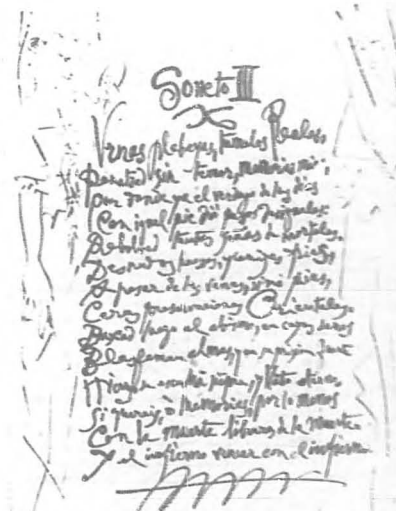 Soneto III
Vrnas plebeyas, tumulos Reales,
Penetrad sin temor, memorias mias,
Por donde ya el verdugo de los dias
Con igual pie dió pasos desiguales.
Rebolbed tantas señas de mortales,
Desnudos huesos, y cenizas frias,
A pesar de las vanas, si no pias,
Caras preservaciones Orientales.
Baxad luego al abismo, en cuyos senos
Blasfeman almas, y en su prision fuerte
Hierros se escuchan siempre, y llanto eterno,
Si quereis, ò memorias, por lo menos
Con la muerte libraros de la muerte
Y el infierno vencer con el infierno.